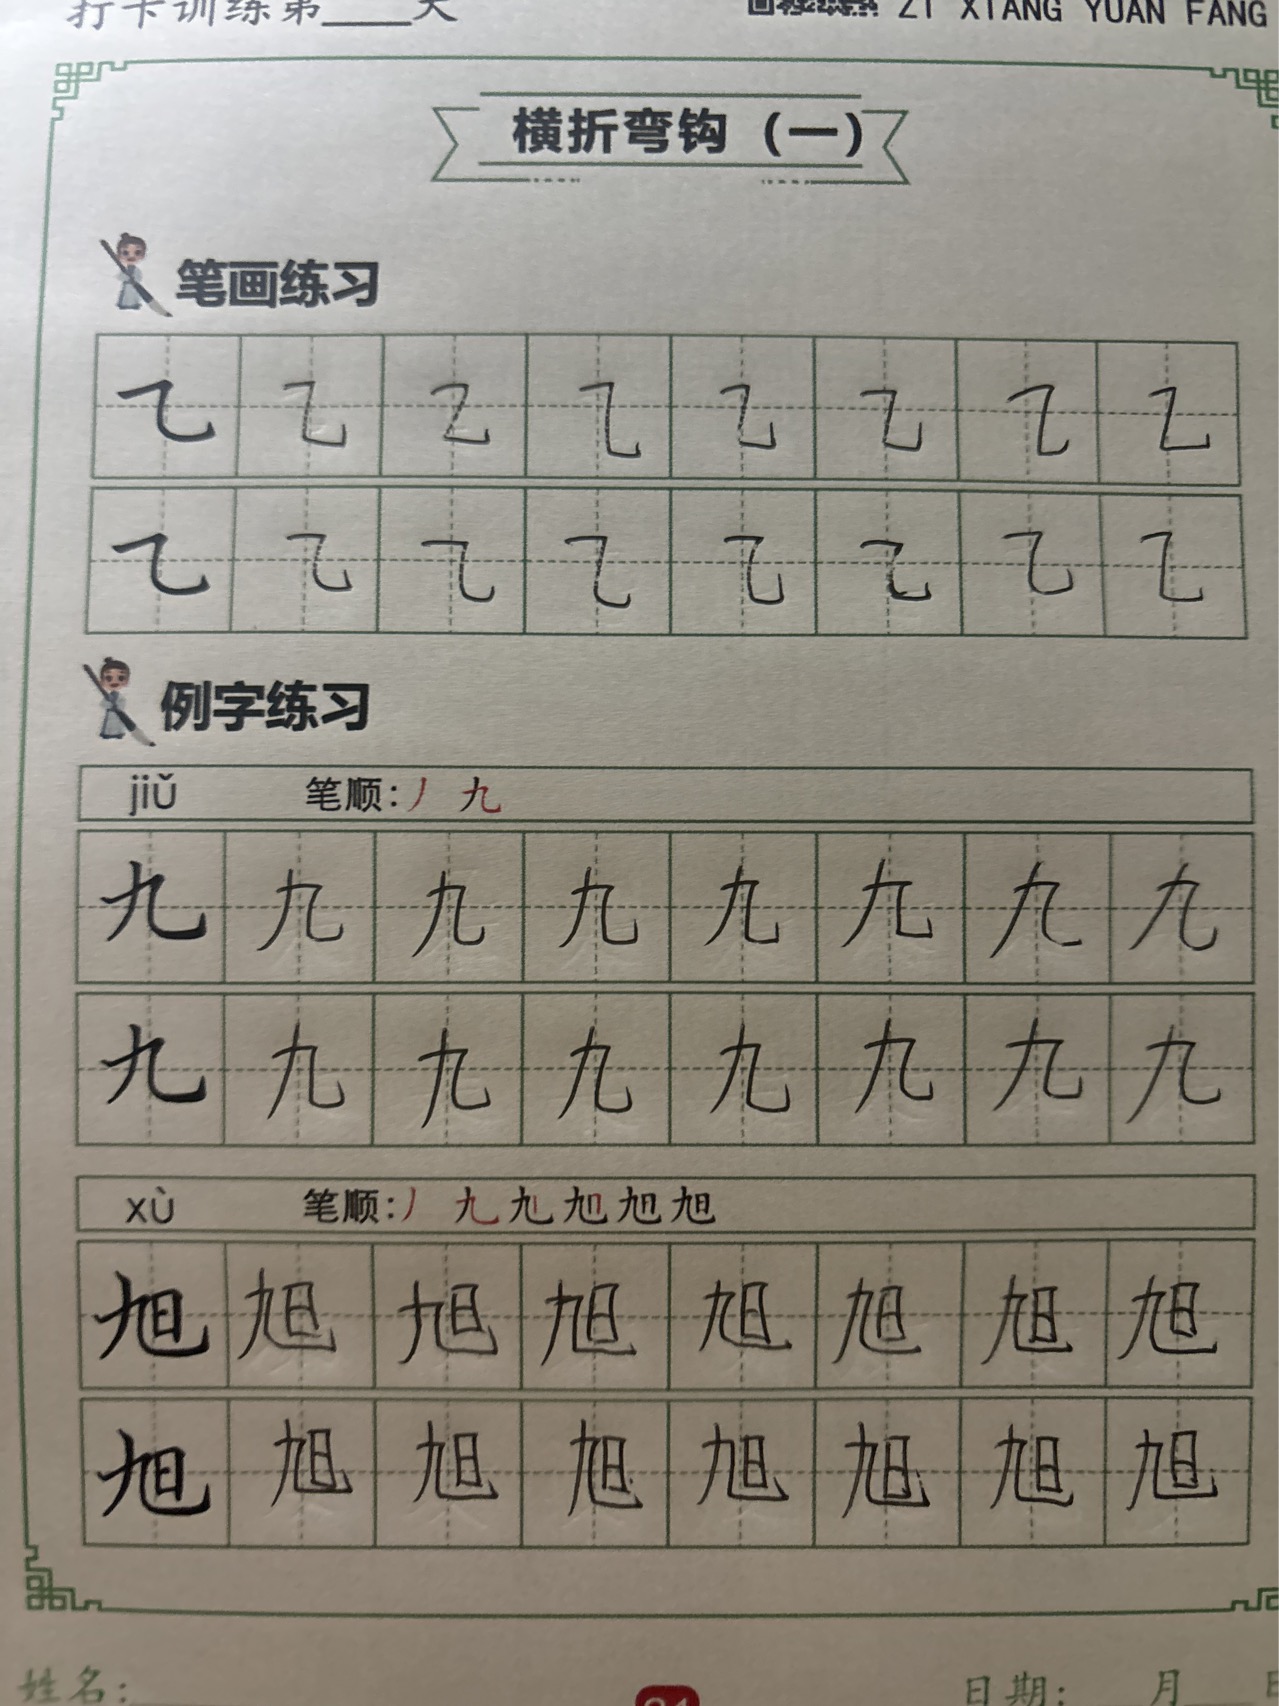 打卡训练第____天
ZI XIANG YUAN FANG
横折弯钩（一）
笔画练习
乁 乁 乁 乁 乁 乁 乁 乁
乁 乁 乁 乁 乁 乁 乁 乁
例字练习
jiǔ 笔顺:丿 九
九 九 九 九 九 九 九 九
九 九 九 九 九 九 九 九
xù 笔顺:丿 九 旭 旭 旭 旭
旭 旭 旭 旭 旭 旭 旭 旭
旭 旭 旭 旭 旭 旭 旭 旭
姓名:
日期: 月